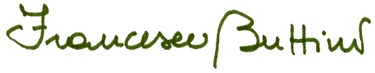 Francesco Buttini